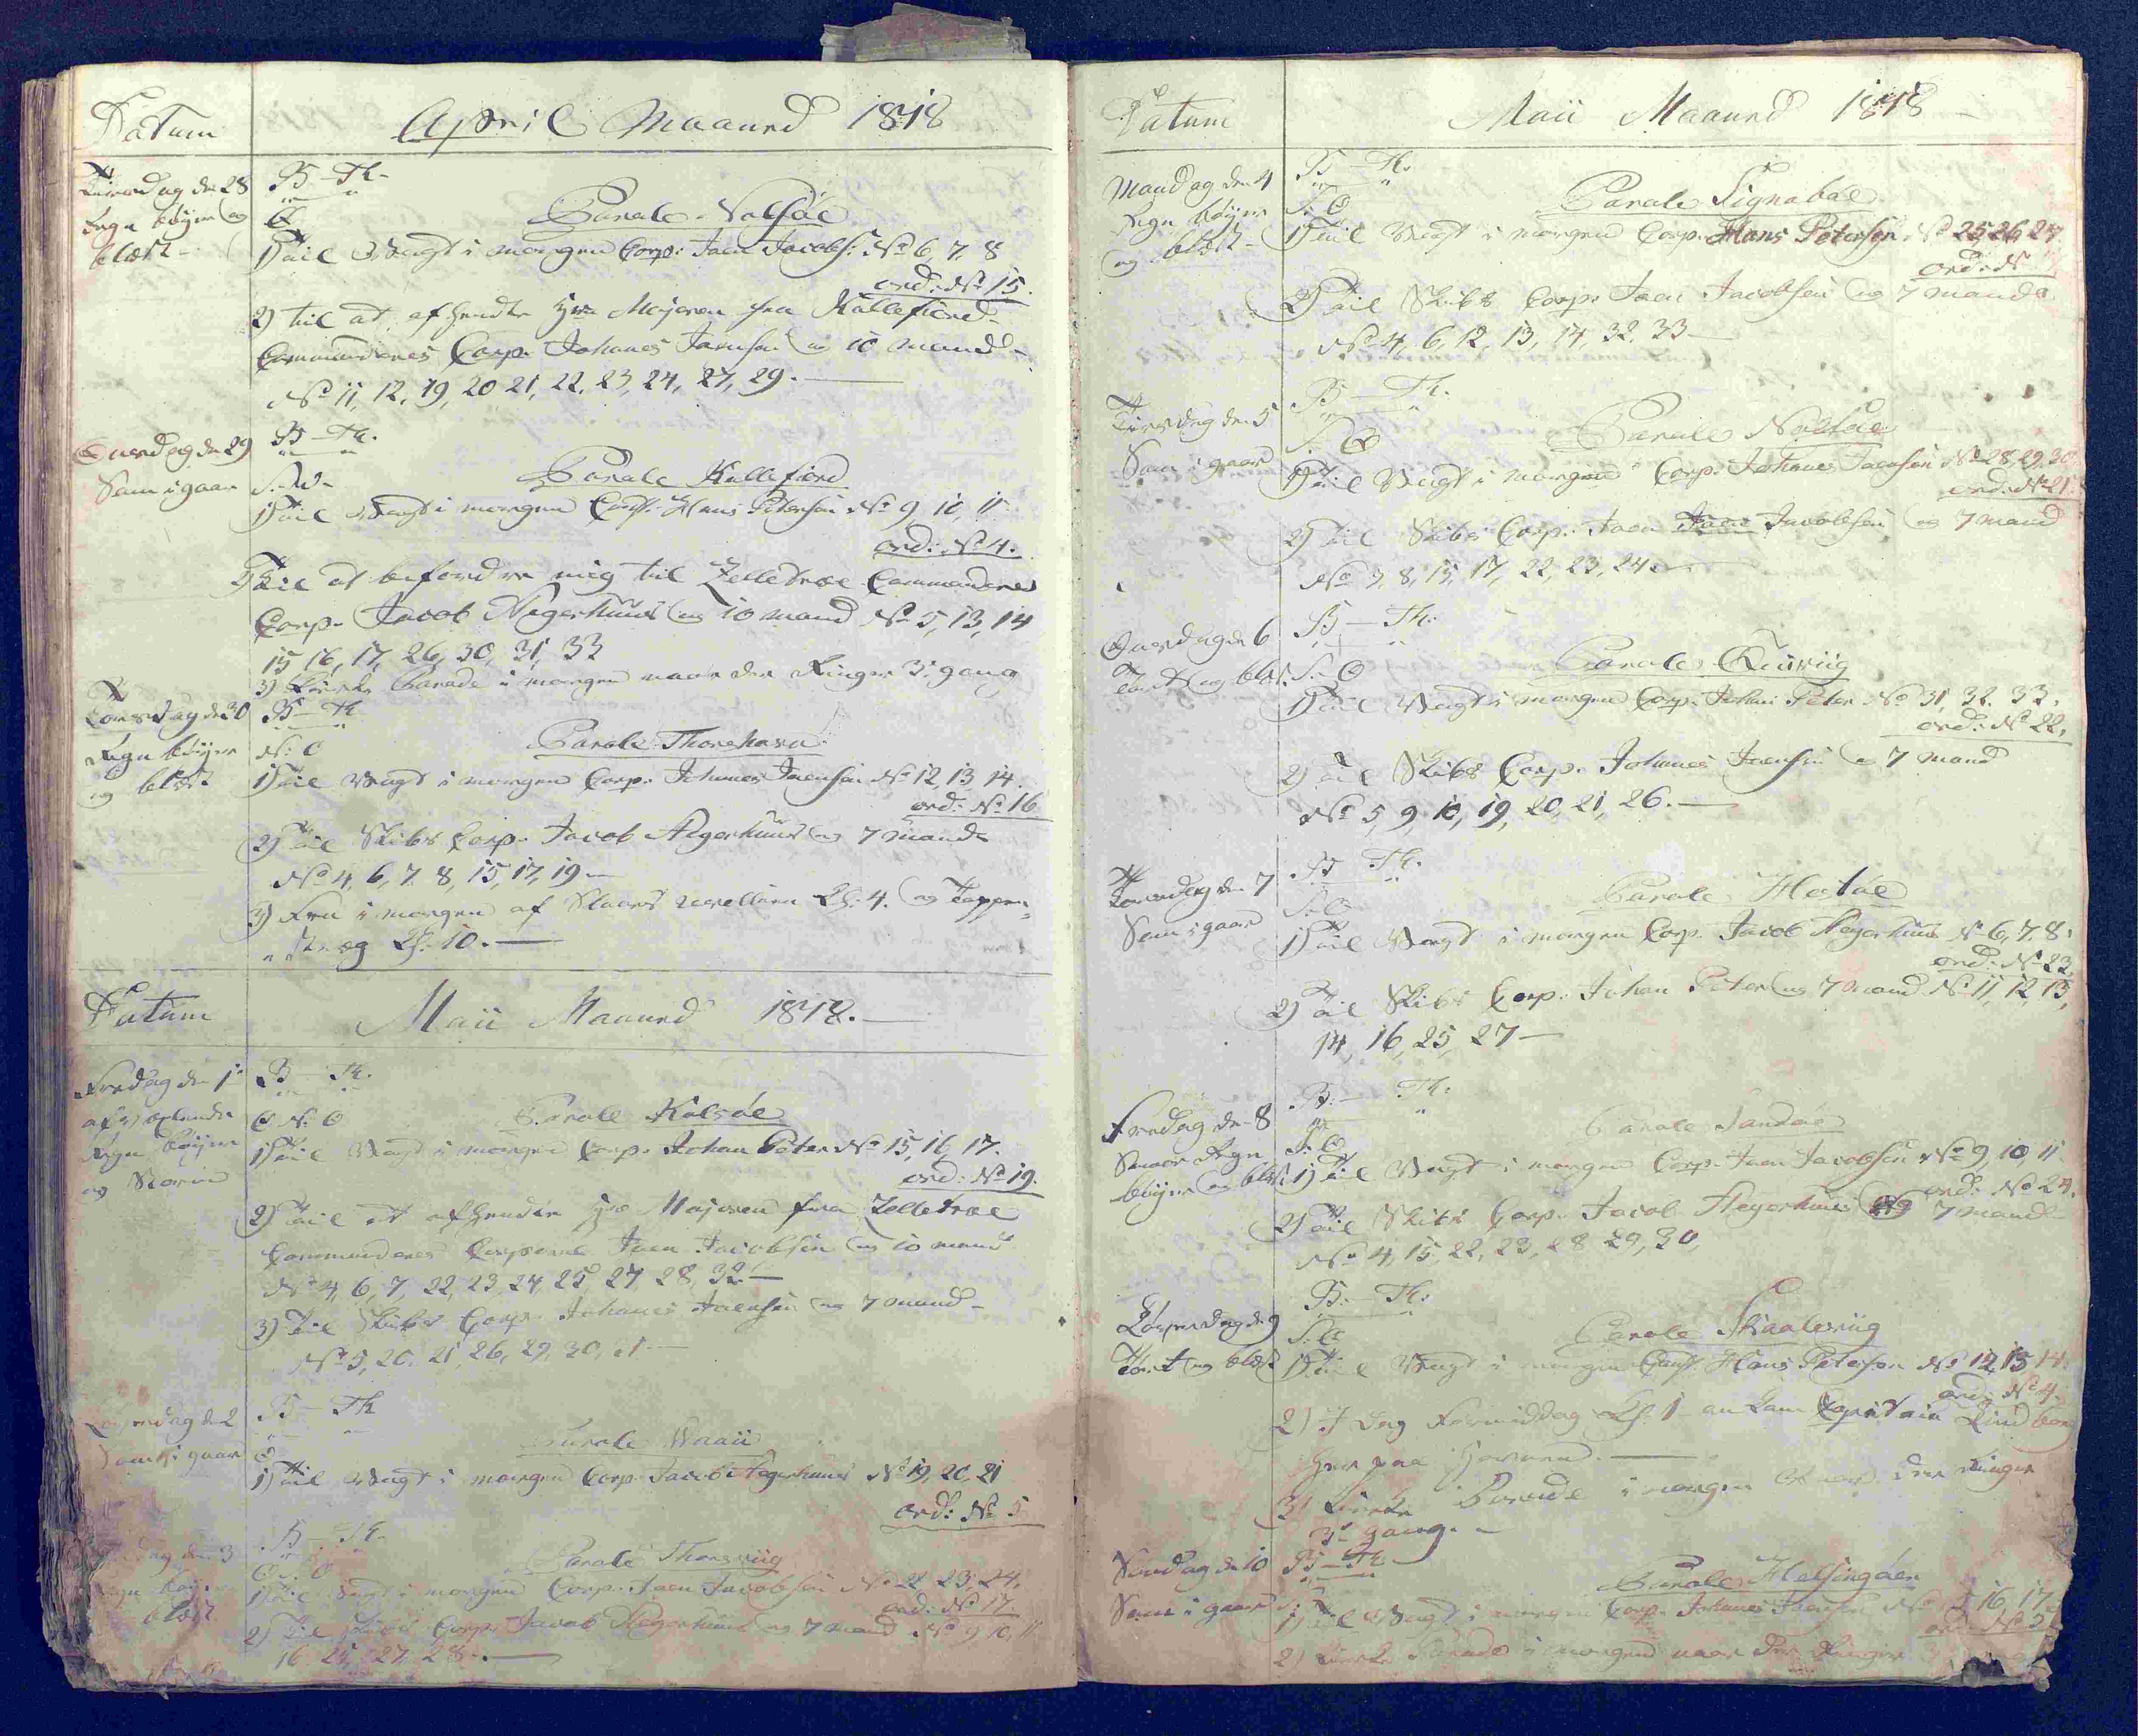 Datum
April Maaned 1818
Tirsdag den 28
Regn böyer og
blæst -
B - Th -
Parole Nolsöe
1) Til Vagt i morgen Corp: Joen Jacobs: No 6, 7, 8
ord: No 15.
2) til at afhendte Hr Majoren fra Kollefiord
Commanderes Corp. Johanes Joensen og 10 mand -
No 11, 12, 19, 20 21, 22, 23, 24, 27, 29. -
Onsdag den 29
Som i gaar
B - Th.
Parole Kollefiord
1) Til Vagt i morgen Corp: Hans Petersen No 9, 10, 11
ord: No 4.
2) Til at befordre mig til Zelletræe Commanderes
Corp. Jacob Heyerhuus og 10 mand No 5, 13, 14
15 16, 17, 26, 30, 31, 33
3) Kirke Parade i morgen naar der Ringer 3die gang
Torsdag den 30
Regn böyer
og blæst
B - Th
N: O
Parole Thorshavn
1) Til Vagt i morgen Corp. Johanes Joensen No 12, 13, 14.
ord: No 16
2) Til Skibs Corp. Jacob Heyerhuus og 7 mand
No 4, 6, 7. 8, 15, 17, 19 -
3) Fra i morgen af Slaaes revellien Kl: 4. og Tappen
stræg Kl. 10. -
Datum
Maii Maaned 1818. -
Fredag den 1ste
afvexlende
Regn böyer
og Storm
B - Th.
O N: O
Parole Kalsöe
1) Til Vagt i morgen Corp. Johan Peter No 15, 16, 17.
ord: No 19.
2) Til at afhendte Hr Majoren fra Zelletræe
Commanderes Corporal Joen Jacobsen og 10 mand
No 4, 6, 7, 22, 23, 24, 25 27, 28, 32 -
3) Til Skibs Corp. Johanes Joensen og 7 mand -
No 5, 20, 21, 26, 29, 30, 31 -
Löverdag den 2
Som i gaar
B - Th
O
Parole Waaii
1) Til Vagt i morgen Corp. Jacob Heyerhuus No 19, 20, 21
ord: No 5
den 3
Regn böyer
blæst
B - Th.
O. O
Parole Thorsviig
1) Til Vagt i morgen Corp. Joen Jacobsen No 22 23, 24,
ord: No 17
2) Til Skibs Corp. Jacob Heyerhuus og 7 mand No 9 10, 11
16 25, 27, 28. -
Datum
Maii Maaned 1818 -
Mandag den 4
Regn böyer
og blæst -
B - Th.
S: O
Parole Signaböe
1) Til Vagt i morgen Corp. Hans Petersen No 25, 26, 27
ord: No
2) Til Skibs Corp. Joen Jacobsen og 7 mand
No 4, 6, 12, 13, 14, 32, 33 -
Tirsdag den 5
Som i gaar
B - Th.
S. O
Parole Nolsöe
1) Til Vagt i morgen Corp. Johanes Joensen No 28, 29, 30
ord: No 21.
2) Til Skibs Corp. Joen Joen Jacobsen og 7 mand
No 7, 8, 15, 17, 22, 23, 24. -
Onsdag den 6
Tört og blæst
B - Th.
S. O
Parole Qviviig
1) Til Vagt i morgen Corp. Johan Peter No 31, 32. 33.
ord: No 22,
2) Til Skibs Corp. Johanes Joensen og 7 mand
No 5, 9, 10, 19, 20, 21, 26. -
Torsdag den 7
Som i gaar
B Th.
S. O
Parole Hestöe
1) Til Vagt i morgen Corp. Jacob Heyerhuus No 6, 7. 8.
ord: No 23,
2) Til Skibs Corp. Johan Peter og 7 mand No 11, 12 13,
14, 16, 25, 27 -
Fredag den 8
Smaae Regn
böyer og blæst
B. - Th.
S. O
Parole Sandöe
1) Til Vagt i morgen Corp. Joen Jacobsen No 9, 10, 11
ord: No 24.
2) Til Skibs Corp. Jacob Heyerhuus og 7 mand -
No 4, 15, 22, 23, 28 29, 30,
Löverdag den 9
Tört og blæst
B. - Th.
S. O
Parole Skaaleviig
1) Til Vagt i morgen Corp Hans Petersen No 12, 13 14.
ord: No 4.
2) I Dag Formiddag Kl. 1 ankom Capitain Lind
her paa Havnen. -
3) Kirke Parade i morgen naar der Ringer
3die gang. -
Söndag den 10
Som i gaar
B - Th.
Parole Helsingöer
1) Til Vagt i morgen Corp. Johanes Joensen No 16, 17
2) Kirke Parade i morgen naar der Ringer